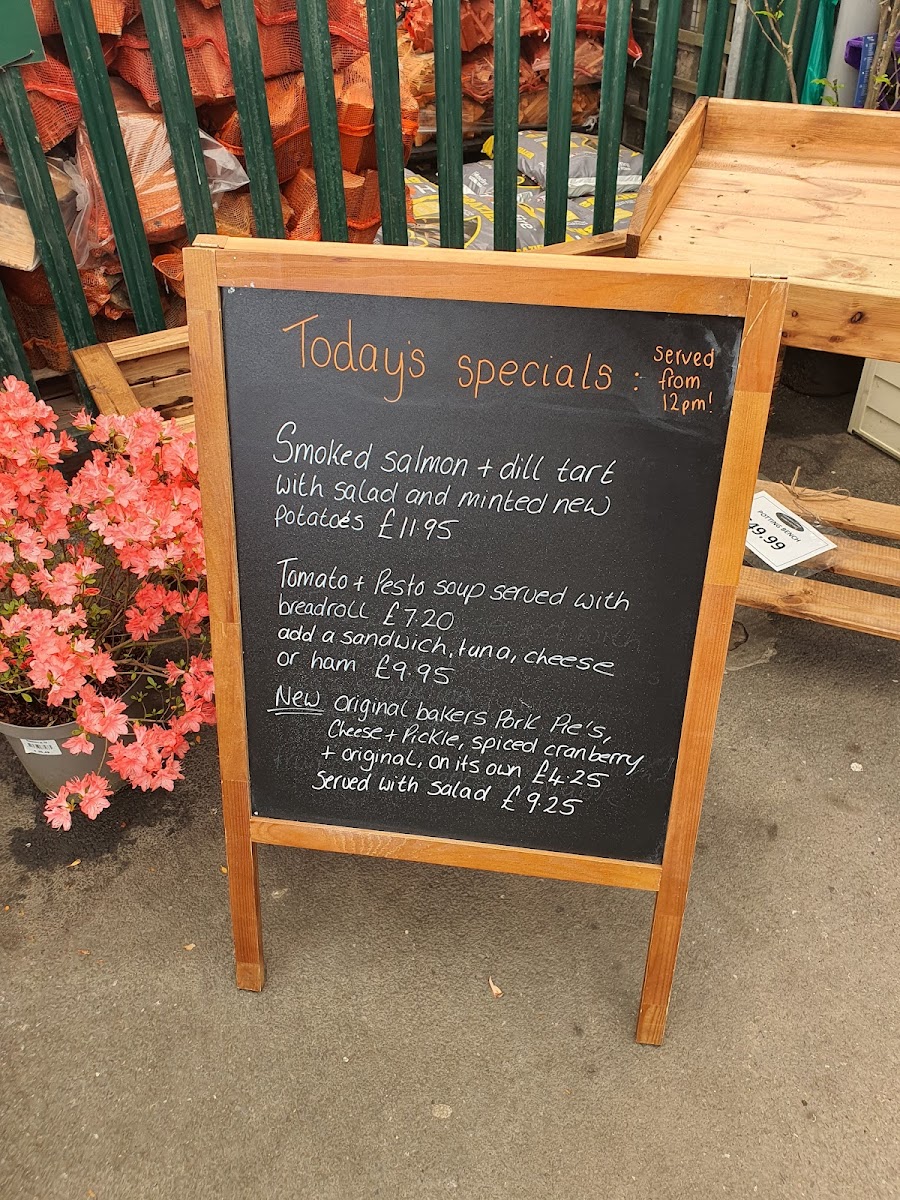 Today's specials :
served
from
12pm!
Smoked salmon + dill tart
with salad and minted new
potatoes £11.95
Tomato + Pesto soup served with
breadroll £7.20
add a sandwich, tuna, cheese
or ham £9.95
New original bakers Pork Pie's,
Cheese + Pickle, spiced cranberry
+ original, on its own £4.25
Served with salad £9.25
POTTING BENCH
49.99